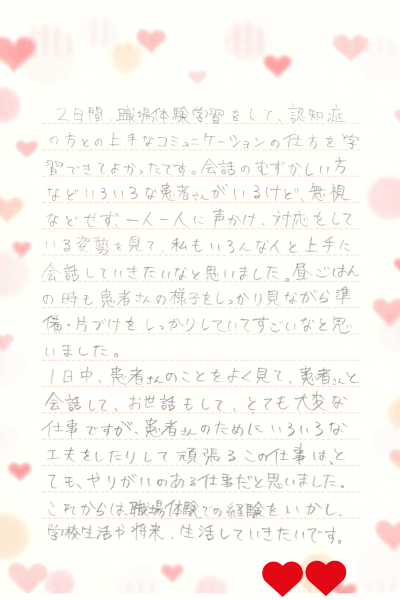 2日間、職場体験学習をして、認知症
の方との上手なコミュニケーションの仕方を学
習できてよかったです。会話のむずかしい方
などいろいろな患者さんがいるけど、無視
などせず、一人一人に声かけ、対応をして
いる姿勢を見て、私もいろんな人と上手に
会話していきたいなと思いました。昼ごはん
の時も患者さんの様子をしっかり見ながら準
備・片づけをしっかりしていてすごいなと思
いました。
1日中、患者さんのことをよく見て、患者さんと
会話して、お世話もして、とても大変な
仕事ですが、患者さんのためにいろいろな
工夫をしたりして頑張るこの仕事は、と
ても、やりがいのある仕事だと思いました。
これからは、職場体験での経験をいかし、
学校生活や将来、生活していきたいです。